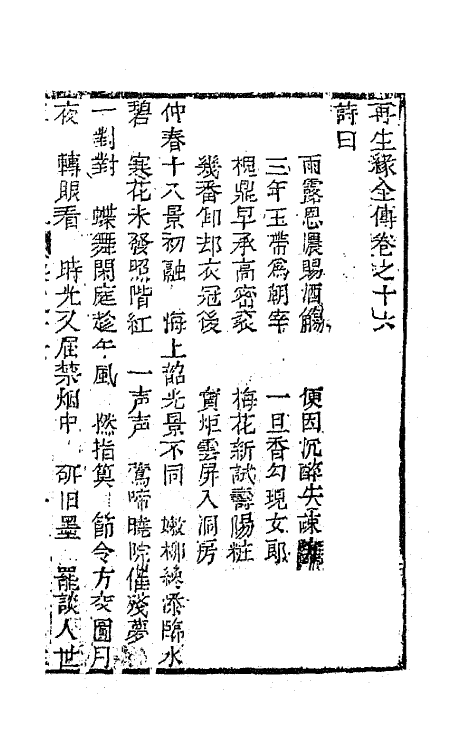 再生緣全傳卷之十六
詩曰
雨露恩濃賜酒觴　便因沉醉失疎
三年玉帶為朝宰　一旦香勾現女郎
槐鼎早承高密袞　梅花新試壽陽粧
幾番卸却衣冠後　寶炬雲屏入洞房
仲春十久景初融　海上韶光景不同　嫩柳綠添臨水
碧　寒花未發照階紅　一声声　鶯啼曉院催殘夢
一對對　蝶舞閑庭趁午風　撚指算　節令方交圓月
夜　轉眼看　時光又屆禁烟中　研旧墨　罷談人世